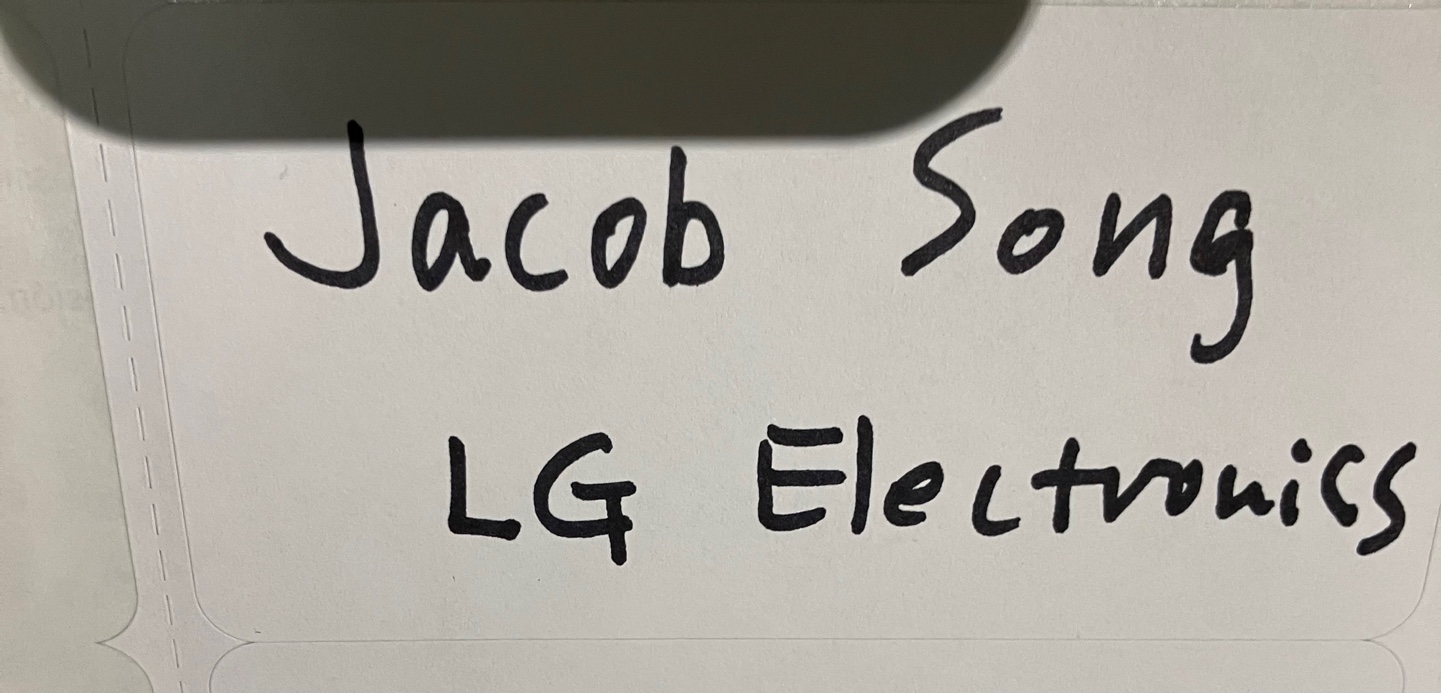 Jacob Song
LG Electronics